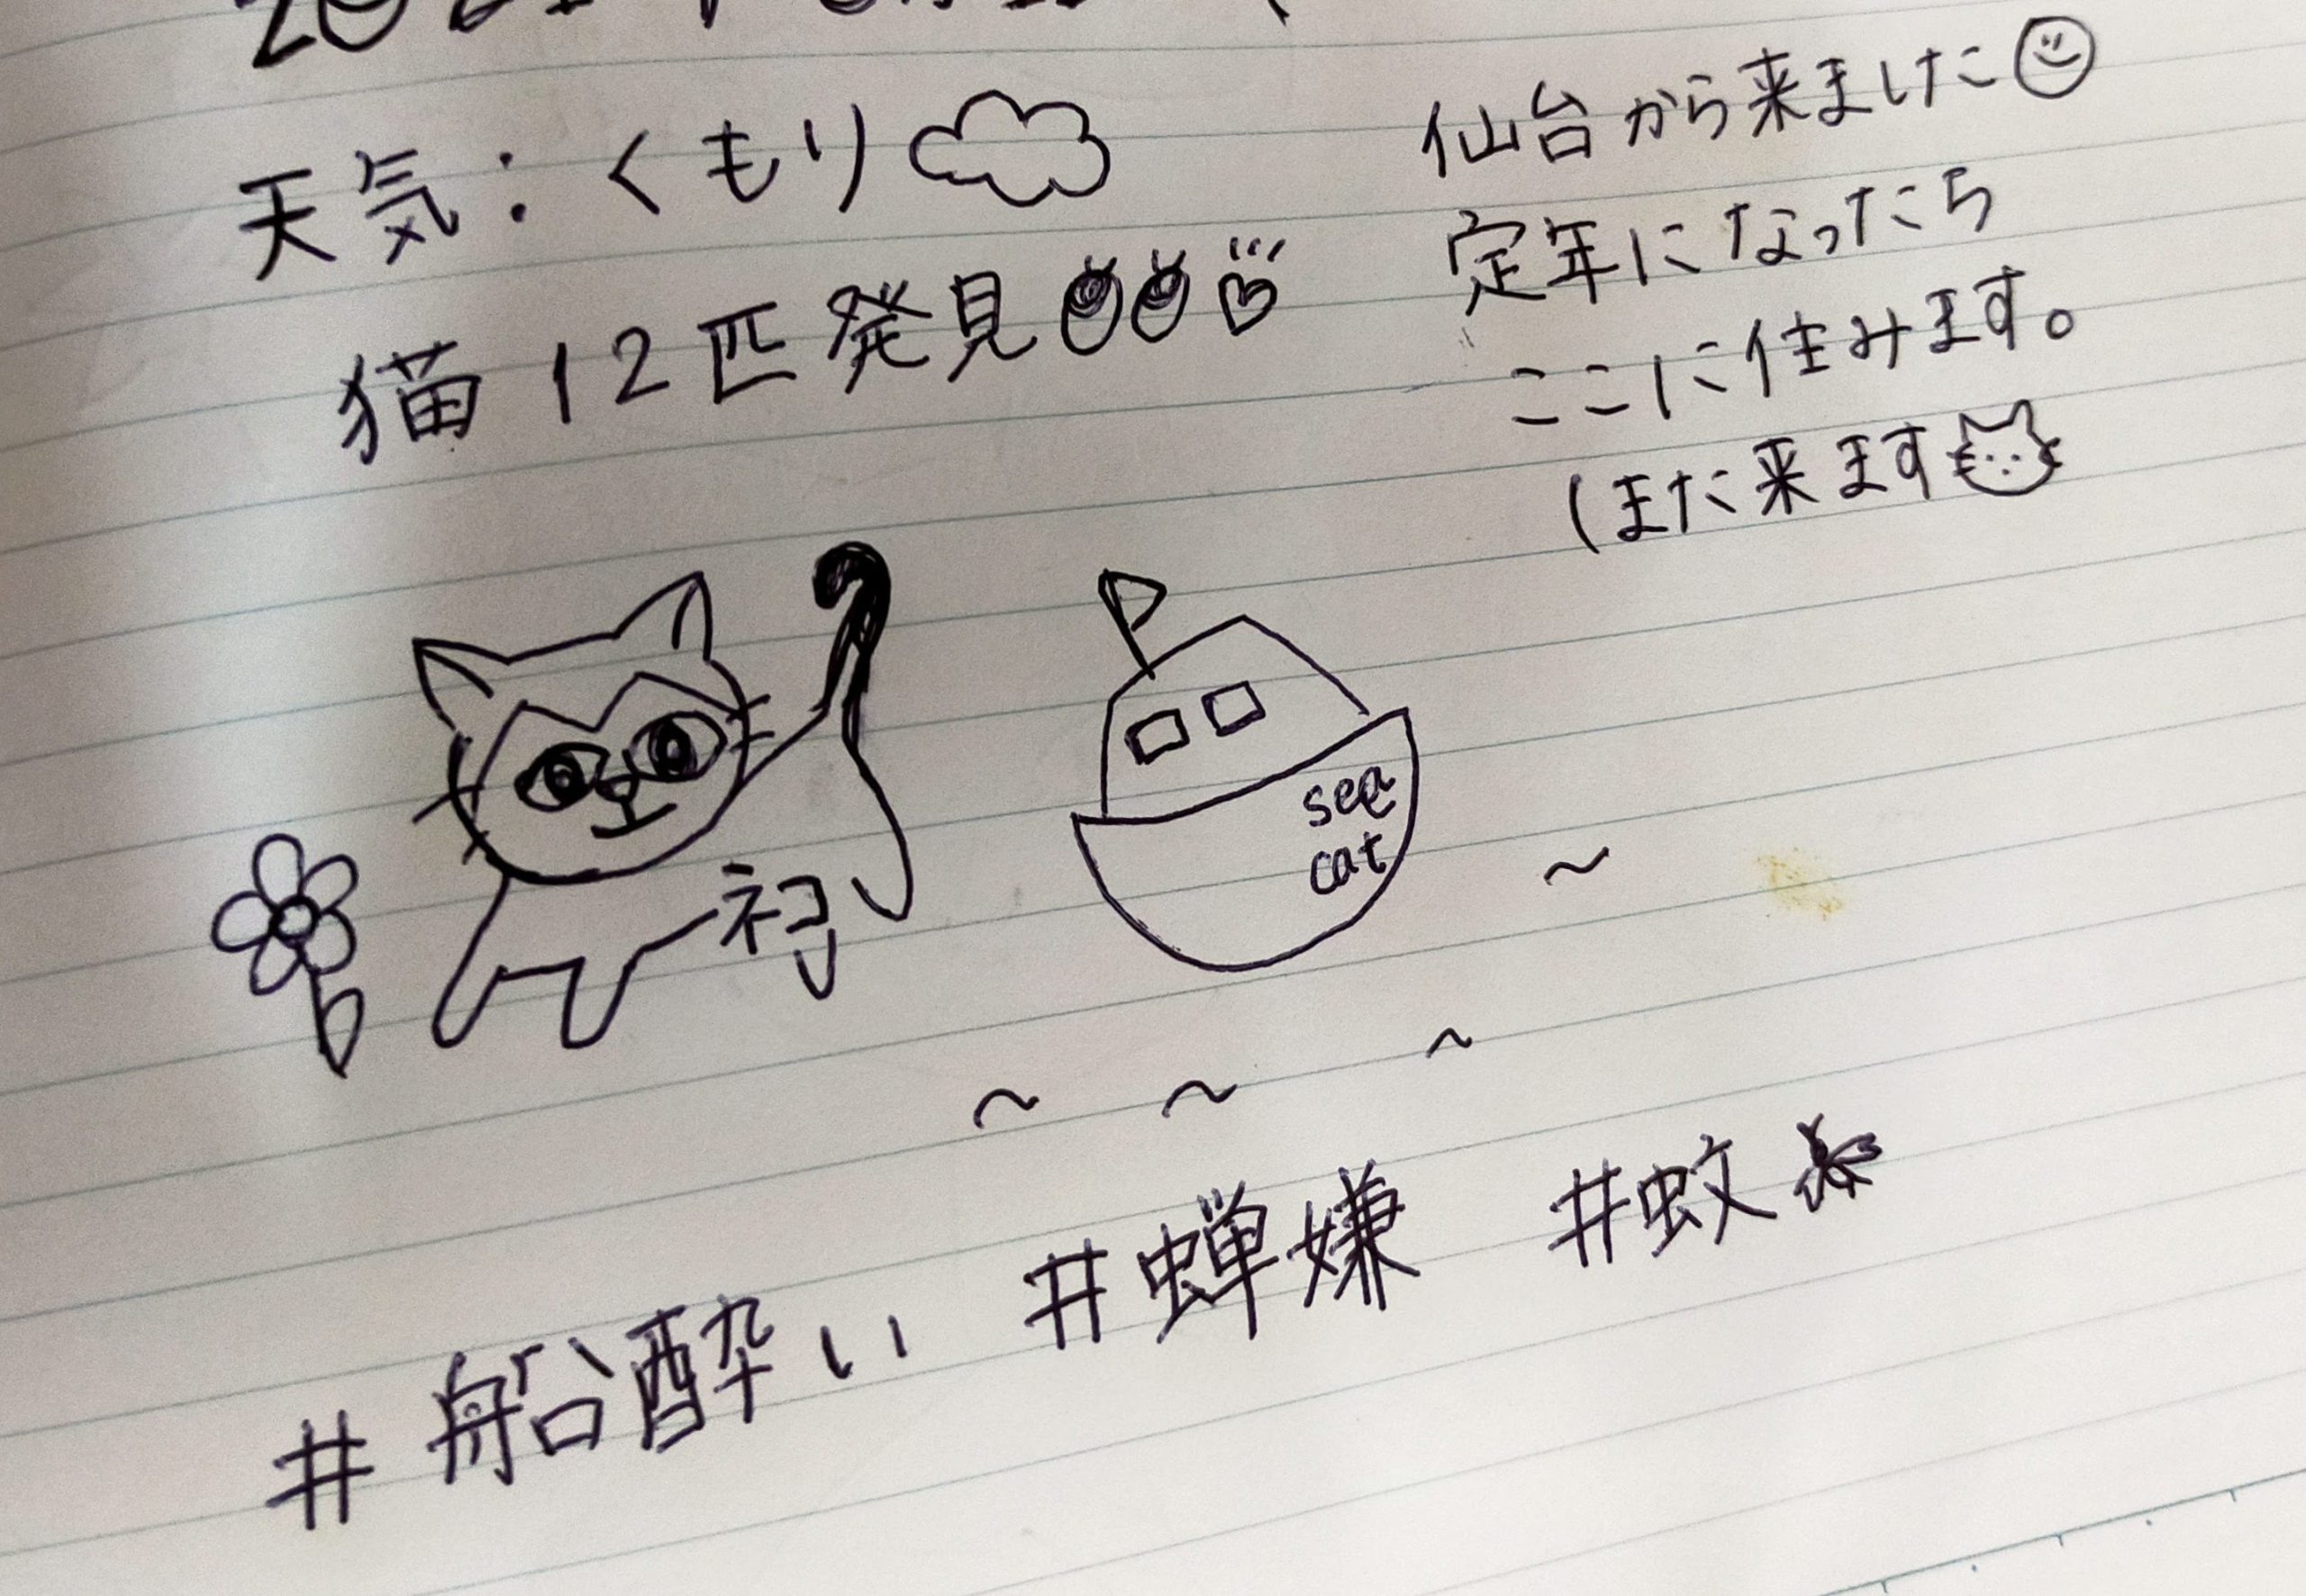 天気：くもり
猫12匹発見
仙台から来ました
定年になったら
ここに住みます。
(また来ます
ネコ
sea
cat
#船酔い #蝉嫌 #蚊